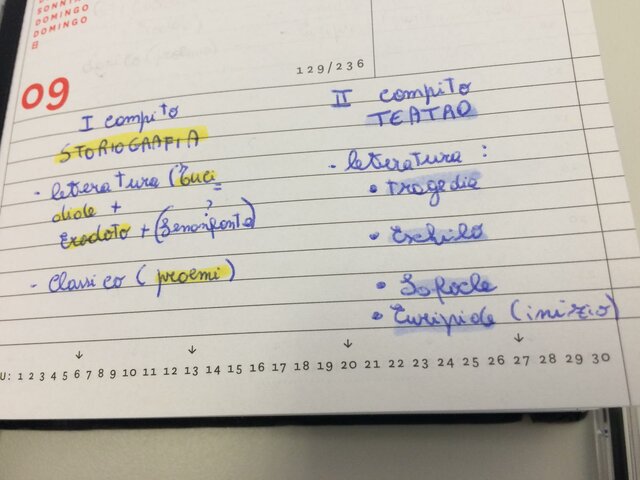 SONNTAG
DOMINGO
DOMINGO
8
09
129/236
I compito
STORIOGRAFIA
- letteratura (Tuci=
dide +
Erodoto + (Senofonte)
?
- Classico (proemi)
II compito
TEATRO
- letteratura :
• tragedia
• Eschilo
• Sofocle
• Euripide (inizio)
U: 1 2 3 4 5 6 7 8 9 10 11 12 13 14 15 16 17 18 19 20 21 22 23 24 25 26 27 28 29 30